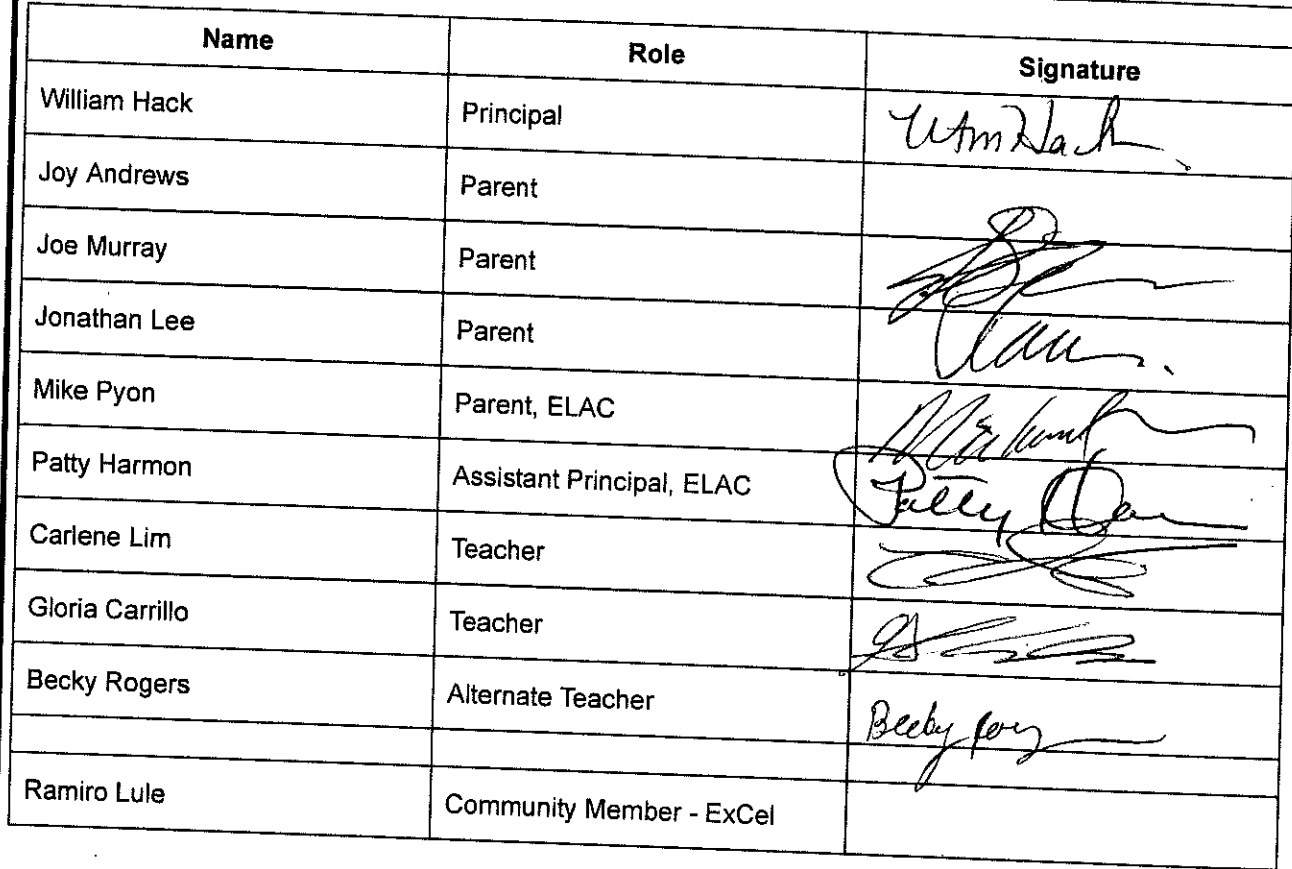 Name Role Signature
William Hack Principal Wm Hack
Joy Andrews Parent
Joe Murray Parent
Jonathan Lee Parent
Mike Pyon Parent, ELAC
Patty Harmon Assistant Principal, ELAC Patty
Carlene Lim Teacher
Gloria Carrillo Teacher
Becky Rogers Alternate Teacher Becky
Ramiro Lule Community Member - ExCel